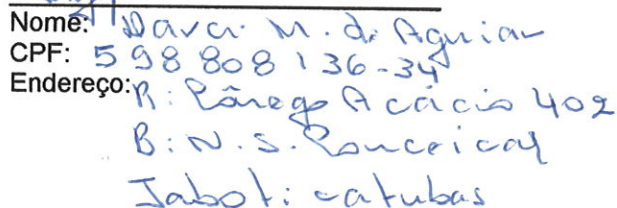 Nome: Davci M. de Aguiar
CPF: 598 808 136-34
Endereço: R: Cônego Acácio 402
B: N. S. Conceição
Jaboticatubas